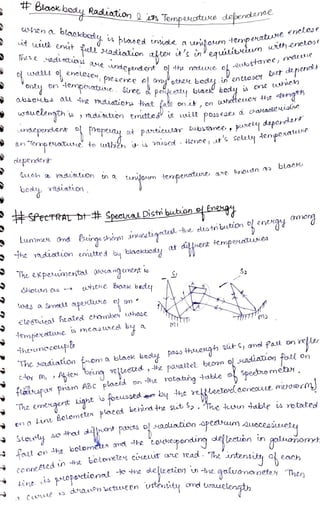 # Blackbody Radiation & its Temperature dependence
when a blackbody is placed inside a uniform temperature enclose
it will emit full radiation after it's in equilibrium with enclose
These radiations are independent of the nature of substance, nature
of walls of enclosure, presence of any other body in enclosure but depends
only on temperature. Since a perfectly black body is one which
absorbs all the radiations that falls on it, or whatever the
wavelength is, radiation emitted it will possess a characteristic
independent of property of particular substance, purely dependent
on Temperature to which it is raised. Hence, it's solely temperature
dependent
Such a radiation in a uniform temperature are known as black
body radiation.
# SPECTRAL DI # Spectral Distribution of Energy
Lummer and Pringsheim investigated the distribution of energy among
the radiation emitted by blackbody at different temperatures
The experimental arrangement is
shown as → where Black body
was a small aperture of an
electrical heated chamber whose
temperature is measured by a
thermocouple
S1
S2
M1
The radiation from a black body pass through slit S1 and fall on reflec
ctor M1. After being reflected, the parallel beam of radiation fall on
prism ABC placed on the rotating table of spectrometer.
The emergent light is focussed by the reflector (concave mirror M
on a line Bolometer placed behind the slit S2. The turn table is rotated
slowly so that different parts of radiation spectrum successively
fall on the bolometer and the corresponding deflection in galvanometer
connected in the bolometer circuit are read. The intensity of each
line is proportional to the deflection in the galvanometer. Then
a curve is drawn between intensity and wavelength